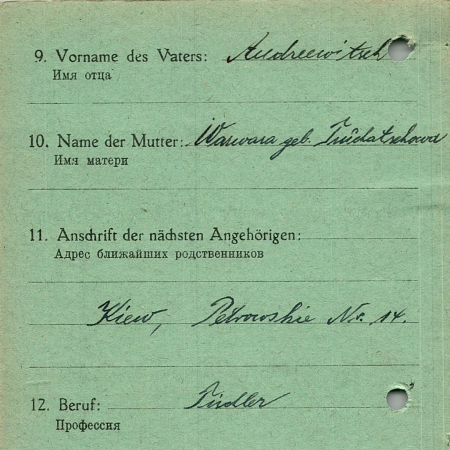 9. Vorname des Vaters: Andreewitsch
Имя отца
10. Name der Mutter: Warwara geb. Trüchatschowa
Имя матери
11. Anschrift der nächsten Angehörigen:
Адрес ближайших родственников
Kiew, Petrowskie No. 14.
12. Beruf:
Профессия